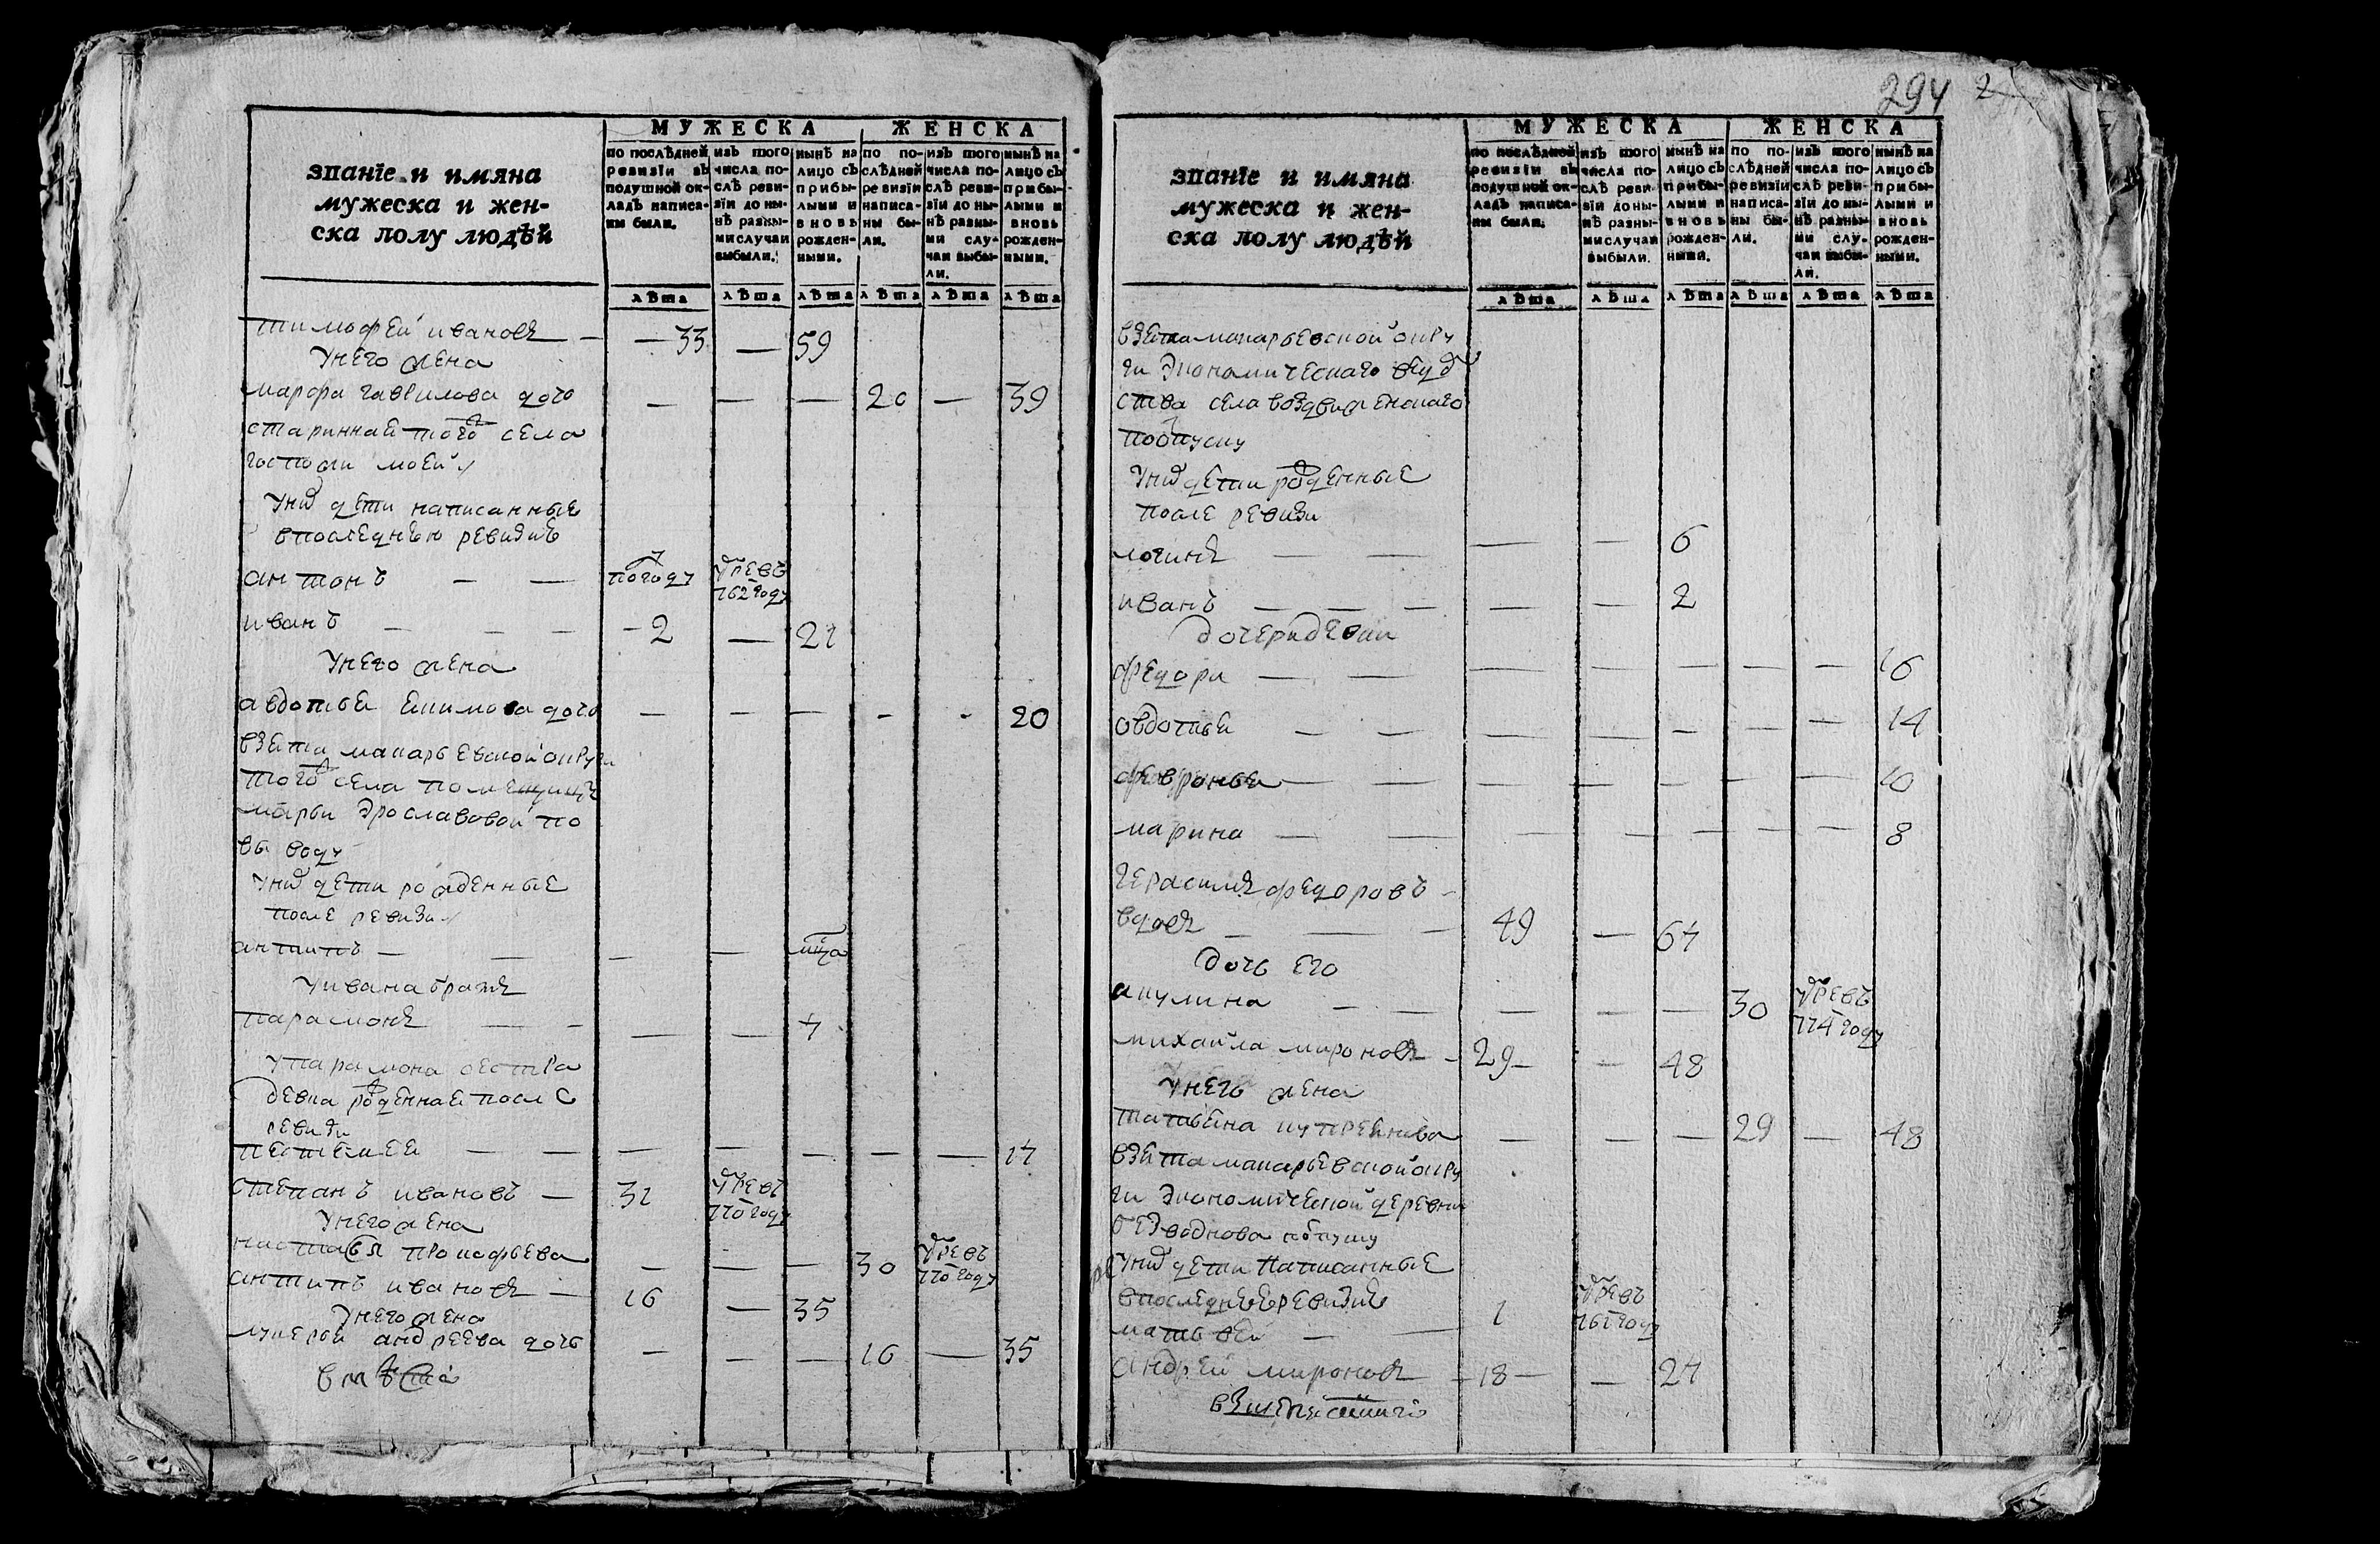 294
МУЖЕСКА ЖЕНСКА
званіе и имяна мужеска и женска полу людѣй
по послѣдней ревизіи въ подушной окладъ написаны были.
изъ того числа послѣ ревизіи до нынѣ разными случаи выбыли.
нынѣ на лицо съ прибылыми и вновь рожденными.
по послѣдней ревизіи написаны были.
изъ того числа послѣ ревизіи до нынѣ разными случаи выбыли.
нынѣ на лицо съ прибылыми и вновь рожденными.
лѣта лѣта лѣта лѣта лѣта лѣта
тимофей ивановъ — 33 — 59
У него жена
марфа гаврилова дочь — — — 20 — 39
стариннаѣ того ж села
госпожи моей
У них дети написанные
в последнею ревизию
антонъ — — по году умре въ 762 году
иванъ — — — 2 — 21
У него жена
авдотья екимова дочь — — — - - 20
взята макарьевской округи
того ж села помещицы
марьи
по
выводу
У них дети рожденные
после ревизи
антипъ — — — —
У ивана братъ
парамонъ — — — — 4
У парамона сестра
девка рожденная после
ревизи
— — — — — — — 14
степанъ ивановъ — 31 умре въ 770 году
У него жена
настасья прокофьева — — — 30 умре въ 770 году
антипъ ивановъ — 16 — 35
У него жена
лукерья андреева дочь — — — 16 — 35
МУЖЕСКА ЖЕНСКА
званіе и имяна мужеска и женска полу людѣй
по послѣдней ревизіи въ подушной окладъ написаны были.
изъ того числа послѣ ревизіи до нынѣ разными случаи выбыли.
нынѣ на лицо съ прибылыми и вновь рожденными.
по послѣдней ревизіи написаны были.
изъ того числа послѣ ревизіи до нынѣ разными случаи выбыли.
нынѣ на лицо съ прибылыми и вновь рожденными.
лѣта лѣта лѣта лѣта лѣта лѣта
взята макарьевской окру
ги экономическаго ведом
ства села воздвиженскаго
по отпуску
У них дети рожденные
после ревизи
логинъ — — — — 6
иванъ — — — — — 2
дочери девки
федора — — — — — — — 16
овдотья — — — — — — — 14
февронья — — — — — — — 10
марина — — — — — — — — 8
герасимъ федоровъ —
вдовъ — — — 49 — 64
дочь его
акулина — — — — — 30 умре въ 774 году
михайла мироновъ — 29 — — 48
У него жена
татьяна — — — 29 — 48
взята макарьевской окру
ги экономической деревни
безводнова по отпуску
У них дети написанные
в последнее ревизие
матвей — — 1 умре въ
андрей мироновъ — 18 — — 24